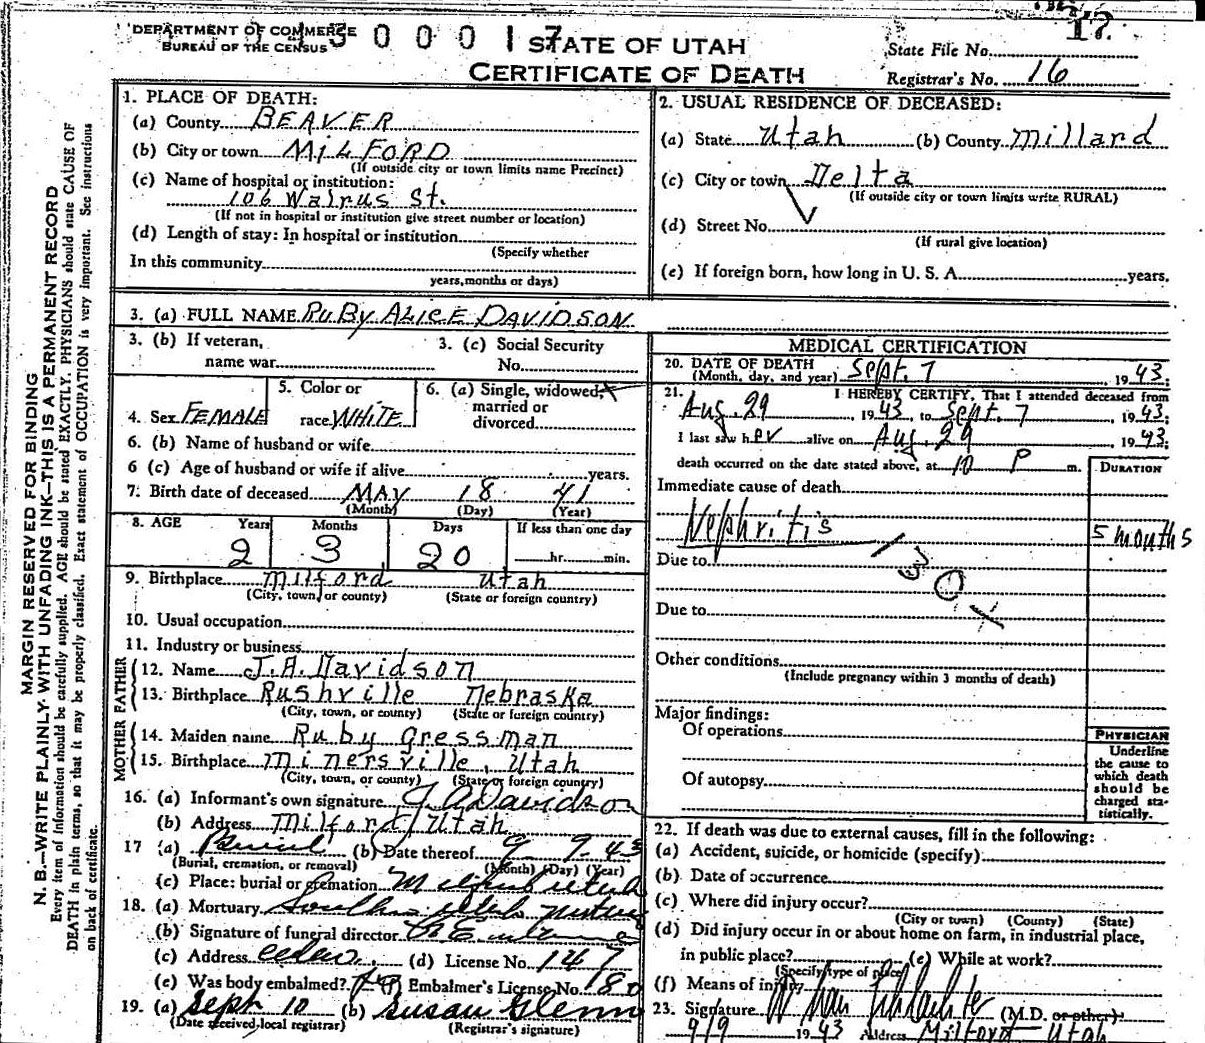 DEPARTMENT OF COMMERCE
BUREAU OF THE CENSUS
300017
17
STATE OF UTAH
CERTIFICATE OF DEATH
State File No.
Registrar's No. 16
MARGIN RESERVED FOR BINDING
N. B.—WRITE PLAINLY, WITH UNFADING INK—THIS IS A PERMANENT RECORD
Every item of information should be carefully supplied. AGE should be stated EXACTLY. PHYSICIANS should state CAUSE OF
DEATH in plain terms, so that it may be properly classified. Exact statement of OCCUPATION is very important. See instructions
on back of certificate.
1. PLACE OF DEATH:
(a) County BEAVER
(b) City or town MILFORD
(If outside city or town limits name Precinct)
(c) Name of hospital or institution:
106 Walrus St.
(If not in hospital or institution give street number or location)
(d) Length of stay: In hospital or institution
(Specify whether
In this community
years, months or days)
2. USUAL RESIDENCE OF DECEASED:
(a) State Utah (b) County Millard
(c) City or town Delta
(If outside city or town limits write RURAL)
(d) Street No.
(If rural give location)
(e) If foreign born, how long in U. S. A. years.
3. (a) FULL NAME RUBY ALICE DAVIDSON
3. (b) If veteran, name war
3. (c) Social Security No.
4. Sex FEMALE
5. Color or race WHITE
6. (a) Single, widowed, married or divorced
6. (b) Name of husband or wife
6 (c) Age of husband or wife if alive years.
7. Birth date of deceased MAY 18 41
(Month) (Day) (Year)
8. AGE Years Months Days If less than one day
2 3 20 hr. min.
9. Birthplace Milford Utah
(City, town, or county) (State or foreign country)
10. Usual occupation
11. Industry or business
FATHER
12. Name J. A. Davidson
13. Birthplace Rushville Nebraska
(City, town, or county) (State or foreign country)
MOTHER
14. Maiden name Ruby Gressman
15. Birthplace Minersville, Utah
(City, town, or county) (State or foreign country)
16. (a) Informant's own signature J. A. Davidson
(b) Address Milford, Utah
17 (a) Burial (b) Date thereof 9 9 43
(Burial, cremation, or removal) (Month) (Day) (Year)
(c) Place: burial or cremation Milford Utah
18. (a) Mortuary
(b) Signature of funeral director
(c) Address Cedar (d) License No. 147
(e) Was body embalmed? Embalmer's License No. 180
19. (a) Sept 10 (b) Susan Glenn
(Date received local registrar) (Registrar's signature)
MEDICAL CERTIFICATION
20. DATE OF DEATH
(Month, day, and year) Sept. 7 1943
21. I HEREBY CERTIFY, That I attended deceased from
Aug. 29 1943 to Sept. 7 1943;
I last saw her alive on Aug. 29 1943;
death occurred on the date stated above, at 10 P m.
DURATION
Immediate cause of death
Nephritis 5 months
130X
Due to
Due to
Other conditions
(Include pregnancy within 3 months of death)
Major findings:
Of operations
Of autopsy
PHYSICIAN
Underline
the cause to
which death
should be
charged sta-
tistically.
22. If death was due to external causes, fill in the following:
(a) Accident, suicide, or homicide (specify)
(b) Date of occurrence
(c) Where did injury occur?
(City or town) (County) (State)
(d) Did injury occur in or about home on farm, in industrial place,
in public place? (e) While at work?
(Specify type of place)
(f) Means of injury
23. Signature (M.D. or other)
9/9 1943 Address Milford Utah